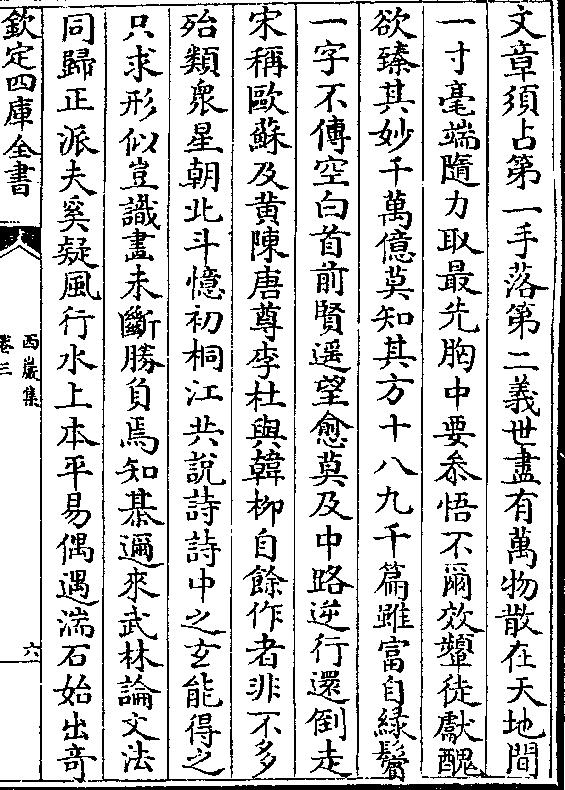 文章須占第一手落第二義世盡有萬物散在天地間
一寸毫端隨力取最先胸中要叅悟不爾效顰徒獻醜
欲臻其妙千萬億莫知其方十八九千篇雖富自緑鬢
一字不傳空白首前賢遥望愈莫及中路逆行還倒走
宋稱歐蘇及黄陳唐尊李杜與韓栁自餘作者非不多
殆類衆星朝北斗憶初桐江共說詩詩中之玄能得之
只求形似豈識畫未斷勝負焉知棊邇來武林論文法
同歸正派夫奚疑風行水上本平易偶遇湍石始出奇
欽定四庫全書
西巖集
卷三
六